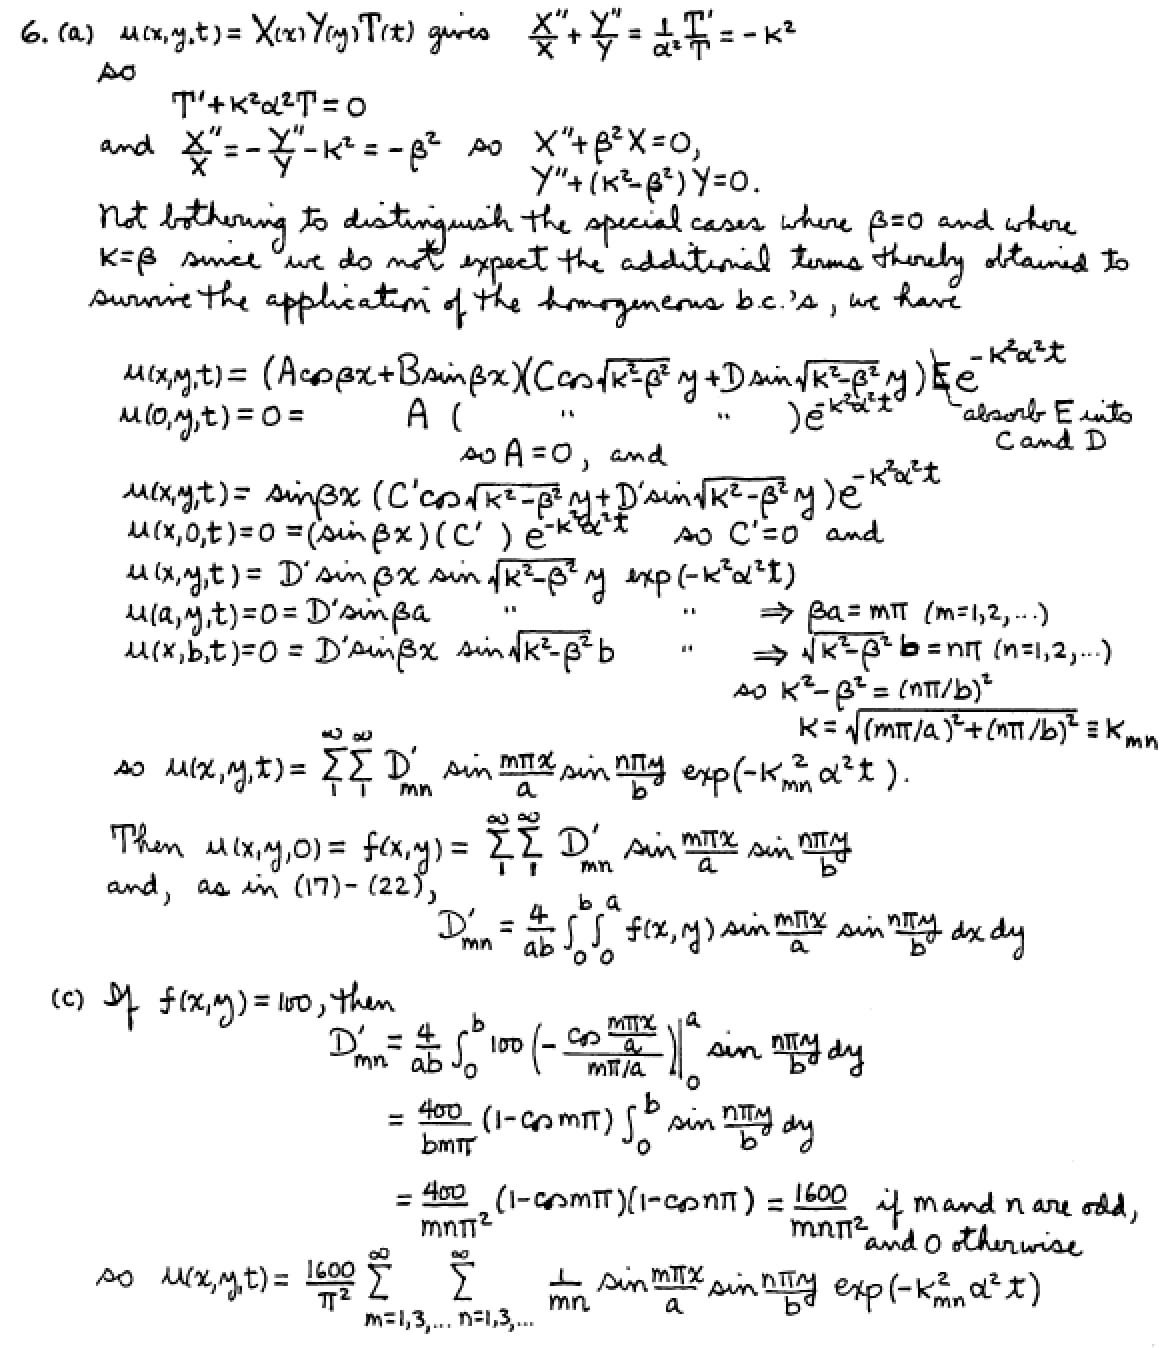 6. (a) u(x,y,t) = X(x)Y(y)T(t) gives X''/X + Y''/Y = 1/α² T'/T = -κ²
so
T' + κ²α²T = 0
and X''/X = -Y''/Y - κ² = -β² so X'' + β²X = 0,
Y'' + (κ²-β²)Y = 0.
Not bothering to distinguish the special cases where β=0 and where
κ=β since we do not expect the additional terms thereby obtained to
survive the application of the homogeneous b.c.'s, we have
u(x,y,t) = (A cos βx + B sin βx)(C cos √(κ²-β²) y + D sin √(κ²-β²) y) E e^(-κ²α²t)
u(0,y,t) = 0 = A ( " " ) e^(-κ²α²t) absorb E into
C and D
so A = 0, and
u(x,y,t) = sin βx (C' cos √(κ²-β²) y + D' sin √(κ²-β²) y) e^(-κ²α²t)
u(x,0,t) = 0 = (sin βx)(C' ) e^(-κ²α²t) so C' = 0 and
u(x,y,t) = D' sin βx sin √(κ²-β²) y exp(-κ²α²t)
u(a,y,t) = 0 = D' sin βa " " ⇒ βa = mπ (m=1,2,...)
u(x,b,t) = 0 = D' sin βx sin √(κ²-β²) b " ⇒ √(κ²-β²) b = nπ (n=1,2,...)
so κ²-β² = (nπ/b)²
κ = √((mπ/a)² + (nπ/b)²) ≡ κ_mn
so u(x,y,t) = Σ_1^∞ Σ_1^∞ D'_mn sin mπx/a sin nπy/b exp(-κ²_mn α²t).
Then u(x,y,0) = f(x,y) = Σ_1^∞ Σ_1^∞ D'_mn sin mπx/a sin nπy/b
and, as in (17)-(22),
D'_mn = 4/ab ∫_0^b ∫_0^a f(x,y) sin mπx/a sin nπy/b dx dy
(c) If f(x,y) = 100, then
D'_mn = 4/ab ∫_0^b 100 (- cos mπx/a / mπ/a)|_0^a sin nπy/b dy
= 400/bmπ (1-cos mπ) ∫_0^b sin nπy/b dy
= 400/mnπ² (1-cos mπ)(1-cos nπ) = 1600/mnπ² if m and n are odd,
and 0 otherwise
so u(x,y,t) = 1600/π² Σ_{m=1,3,...}^∞ Σ_{n=1,3,...}^∞ 1/mn sin mπx/a sin nπy/b exp(-κ²_mn α²t)